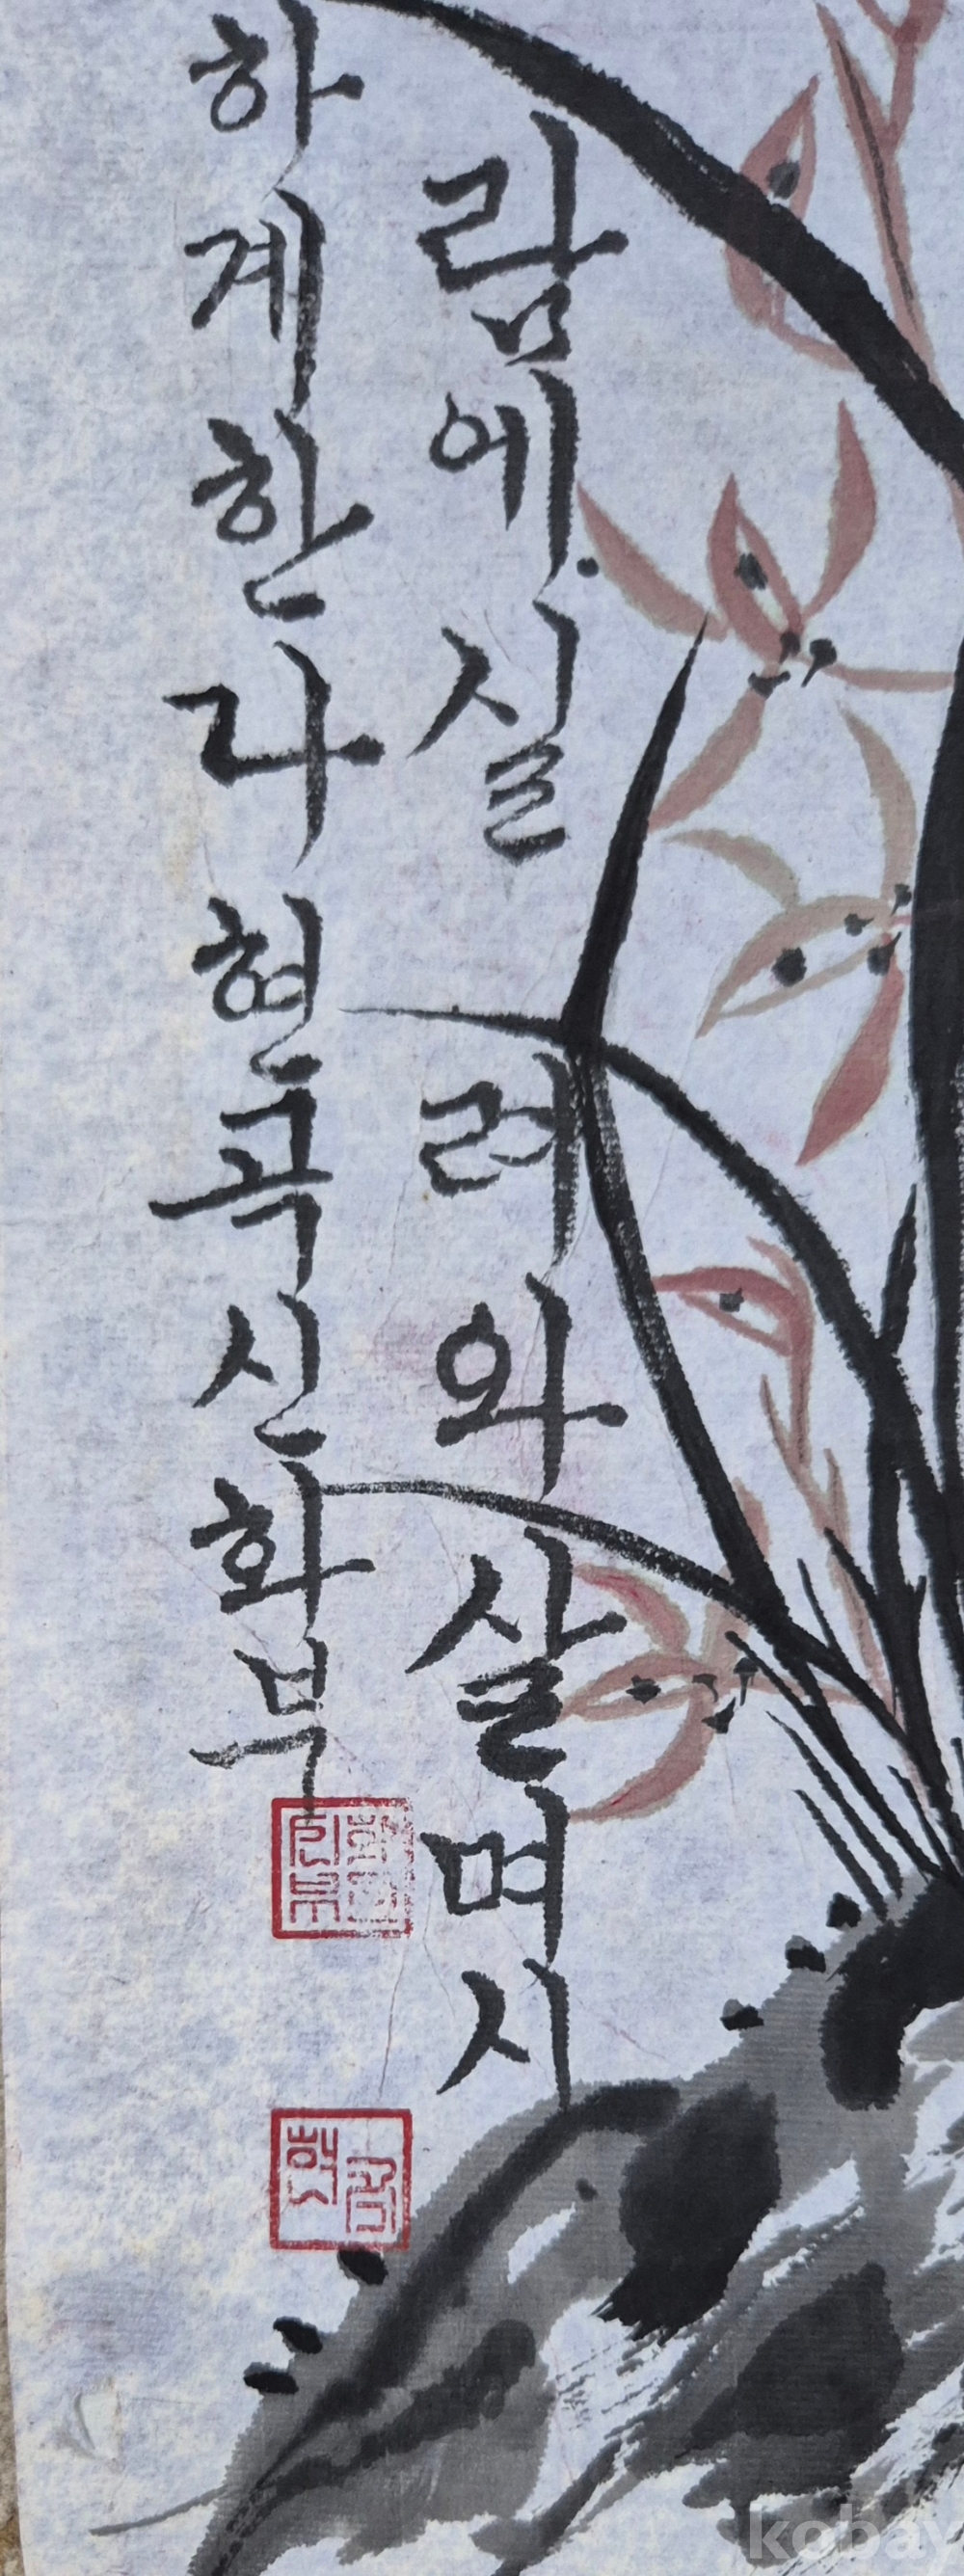 람에실려와살며시
하게한다현곡신화부
kobay